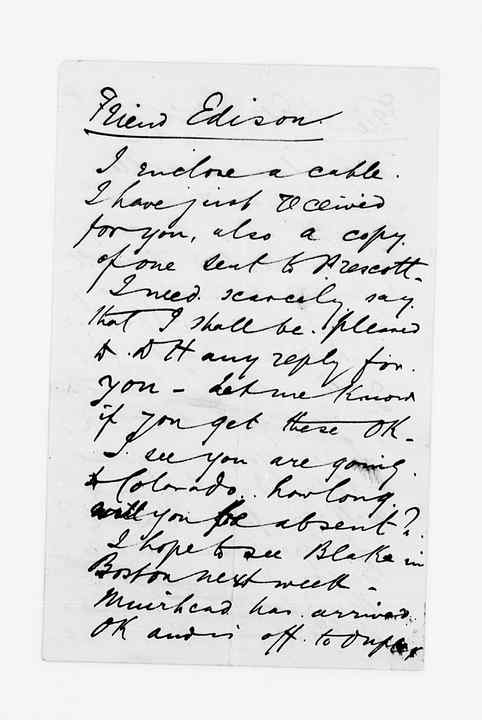 Friend Edison.
I enclose a cable.
I have just received
for you, also a copy.
of one sent to Prescott-
I need. scarcely say.
that I shall be. pleased
to. D H any reply for.
you - Let me know
if you get these OK-
I see you are going.
to Colorado. how long.
will you be absent?.
I hope to see Blake in
Boston next week -
Muirhead has. arrived.
OK and is off. to Duplex